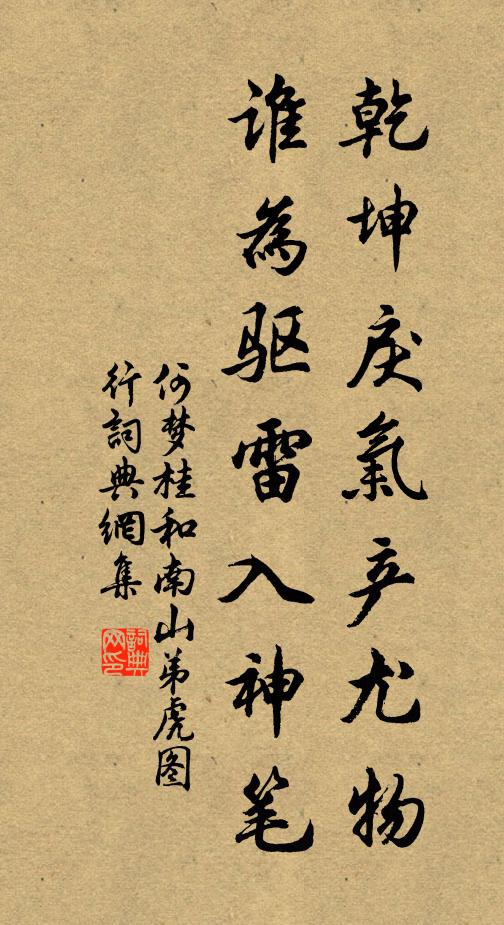 乾坤戾氣产尤物
谁為驱雷入神笔
何梦桂和南山弟虎图
行詞典網集
詞典网印